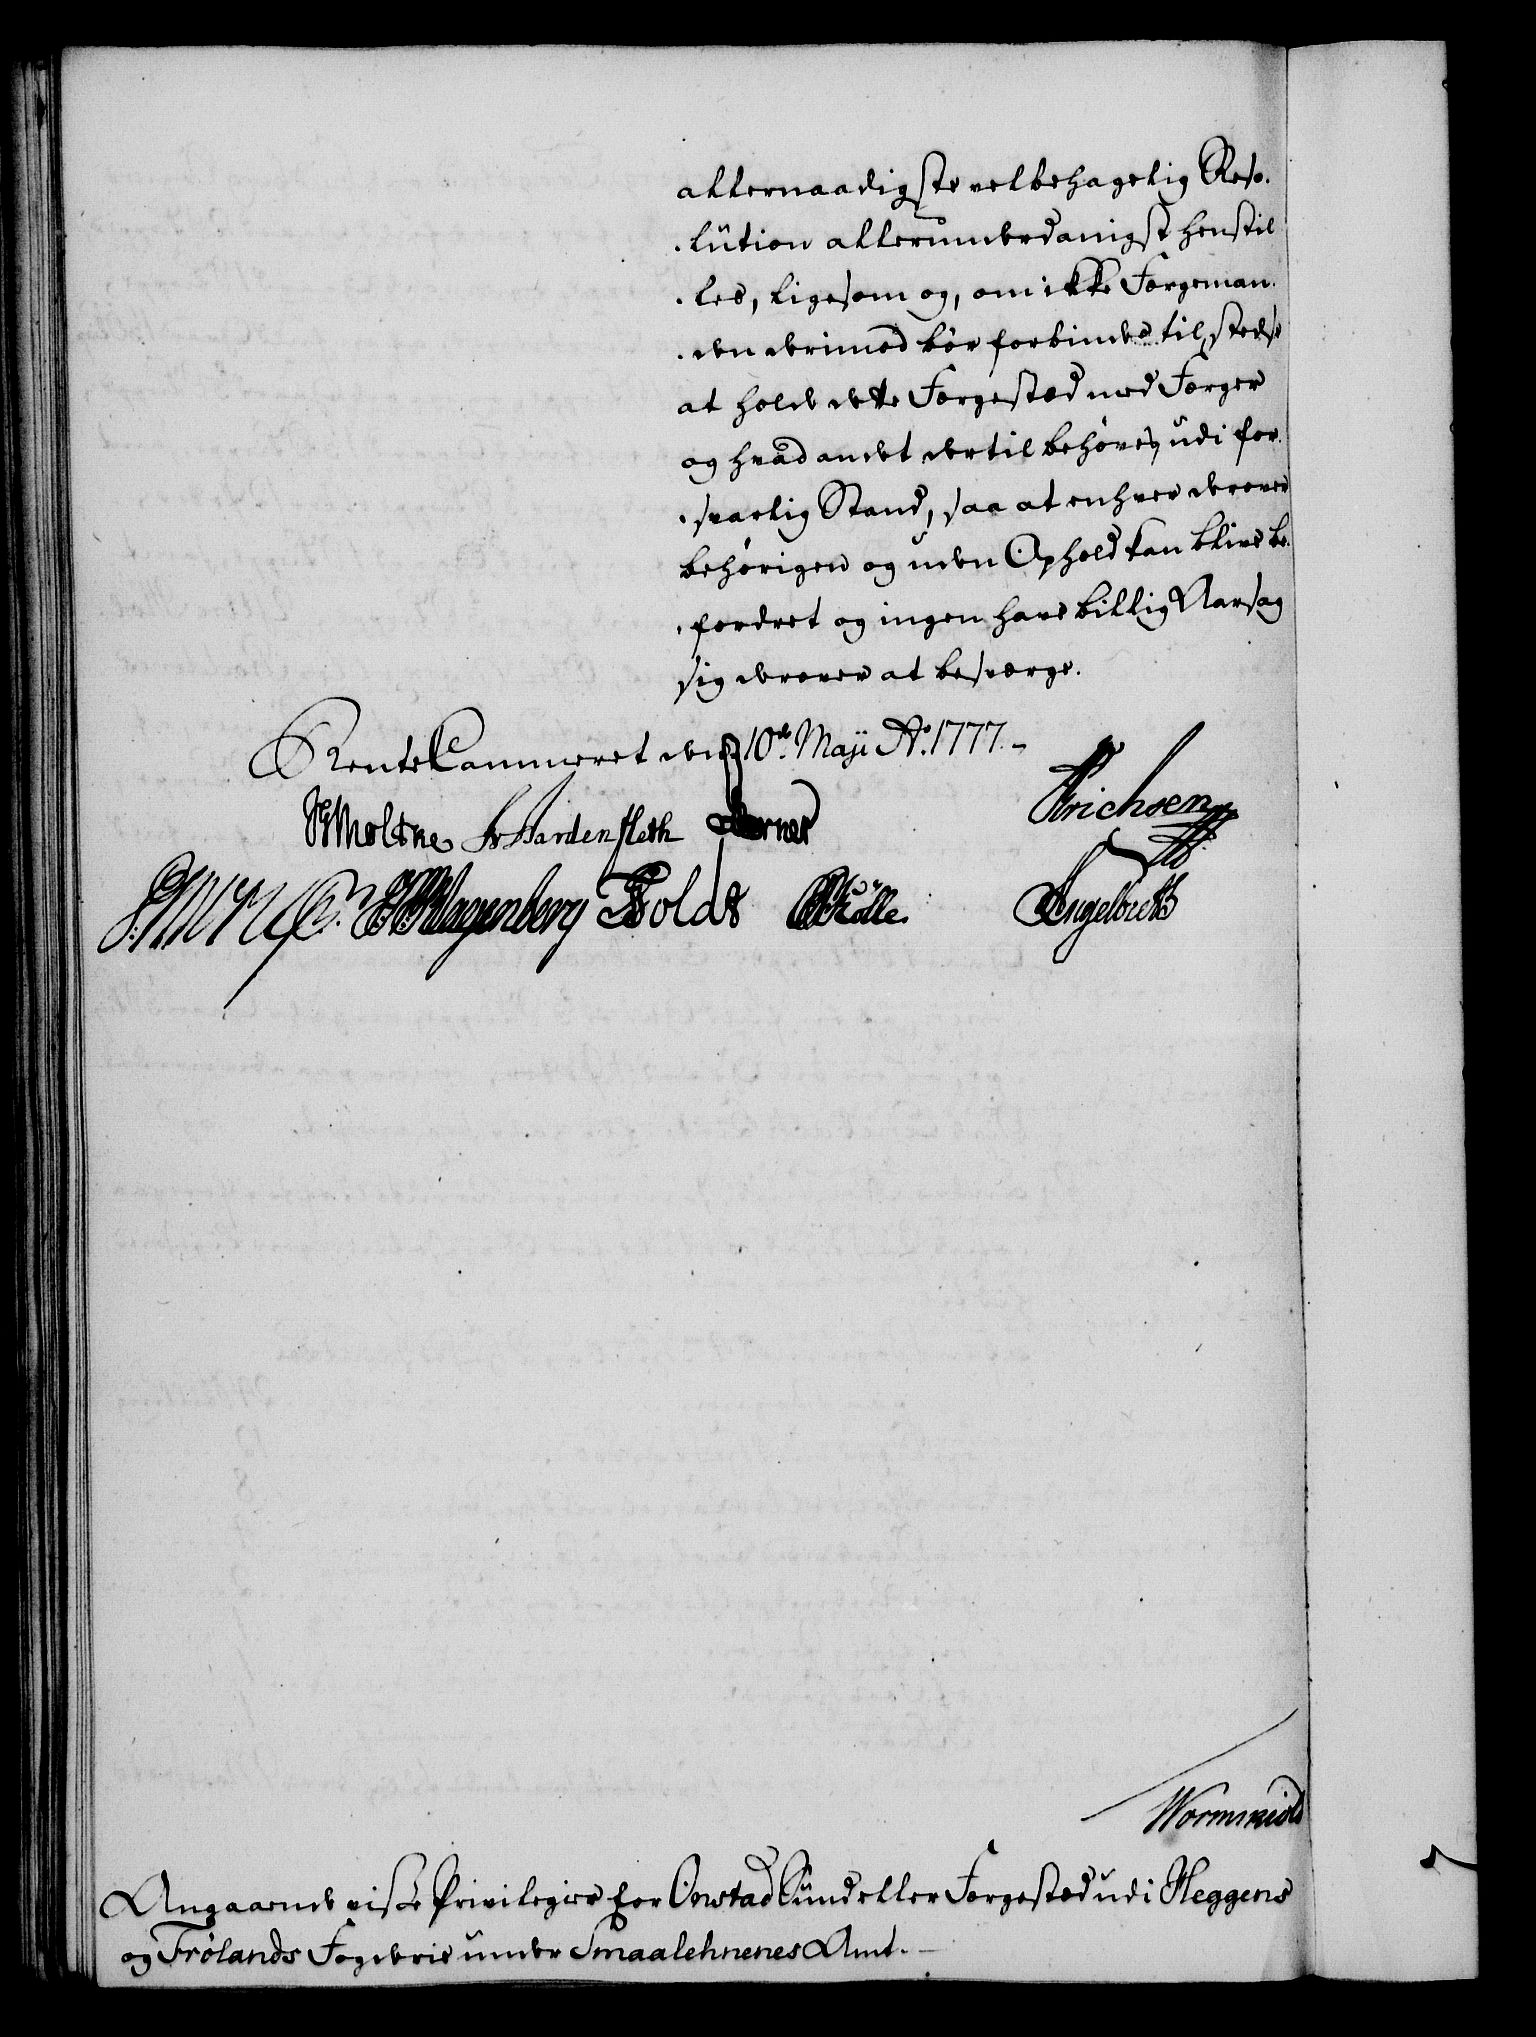 allernaadigste velbehagelig Reso-
lution allerunderdanigst henstil
les, ligesom og, om ikke Færgeman-
den derimod bør forbindes til stedse
at holde dette Færgestæd med Færger
og hvad andet dertil behøves, udi for-
svarlig Stand, saa at enhver derover
behørigen og uden Ophold kan blive be-
fordret og ingen have billig Aarsag
sig derover at besværge.
RenteCammeret den 10de Maji Ao. 1777.
HMoltke Hardenfleth Erichsen
Klagenberg Holdt Rålle. Engelbreth
Wormskiold
Angaaende visse Privilegier for Onstad Sund eller Færgestæd udi Heggens
og Frølands Fogderie under Smaalehnenes Amt.